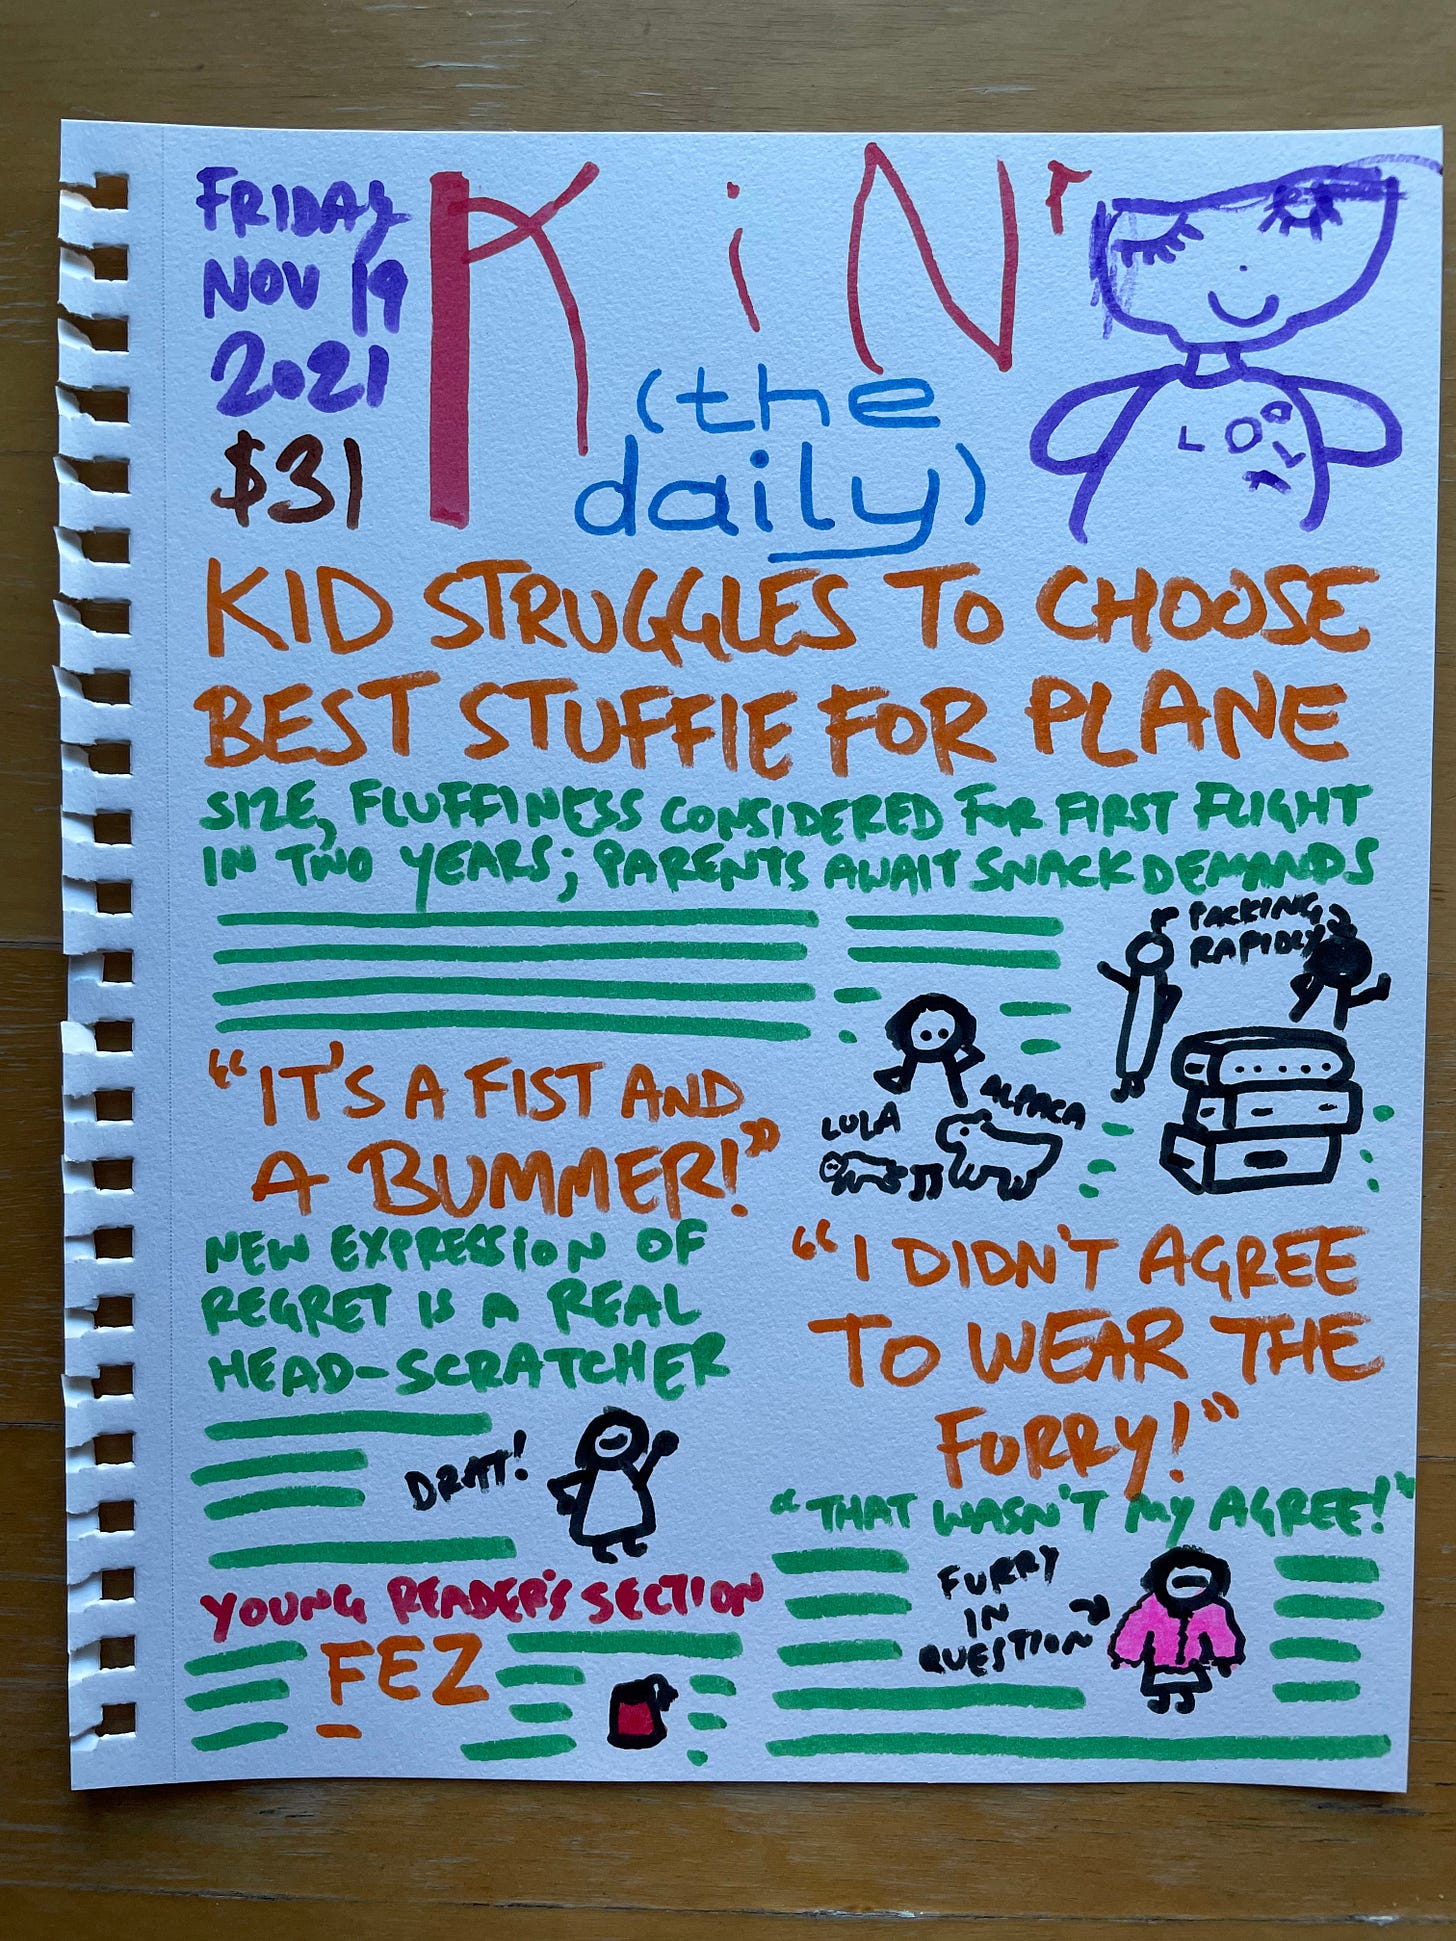 FRIDAY
NOV 19
2021
$31
KiN
(the
daily)
LOOL
KID STRUGGLES TO CHOOSE
BEST STUFFIE FOR PLANE
SIZE, FLUFFINESS CONSIDERED FOR FIRST FLIGHT
IN TWO YEARS; PARENTS AWAIT SNACK DEMANDS
"PACKING
RAPIDLY"
LULA
ALPACA
"IT'S A FIST AND
A BUMMER!"
NEW EXPRESSION OF
REGRET IS A REAL
HEAD-SCRATCHER
DRAT!
"I DIDN'T AGREE
TO WEAR THE
FURRY!"
"THAT WASN'T MY AGREE!"
FURRY
IN
QUESTION
YOUNG READER'S SECTION
FEZ